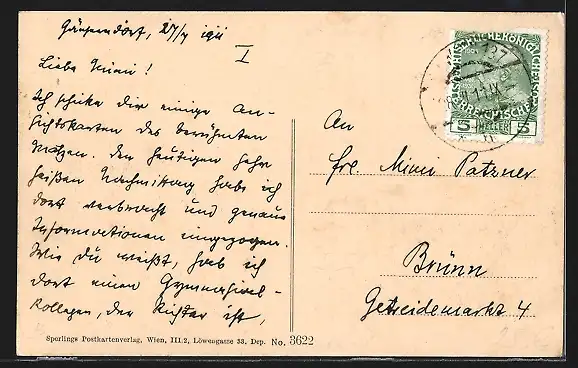 Gänserndorf, 27/7 1911
I
Liebe Minni!
Ich schicke dir einige An-
sichtskarten des berühmten
Matzen. Den heutigen sehr
heißen Nachmittag habe ich
dort verbracht und genaue
Informationen eingezogen.
Wie du weißt, hab ich
dort einen Gymnasial-
Kollegen, der Richter ist,
An
Frl. Mimi Patzner
Brünn
Getreidemarkt 4
5 HELLER 5
Sperlings Postkartenverlag, Wien, III.2, Löwengasse 33, Dep. No. 3622